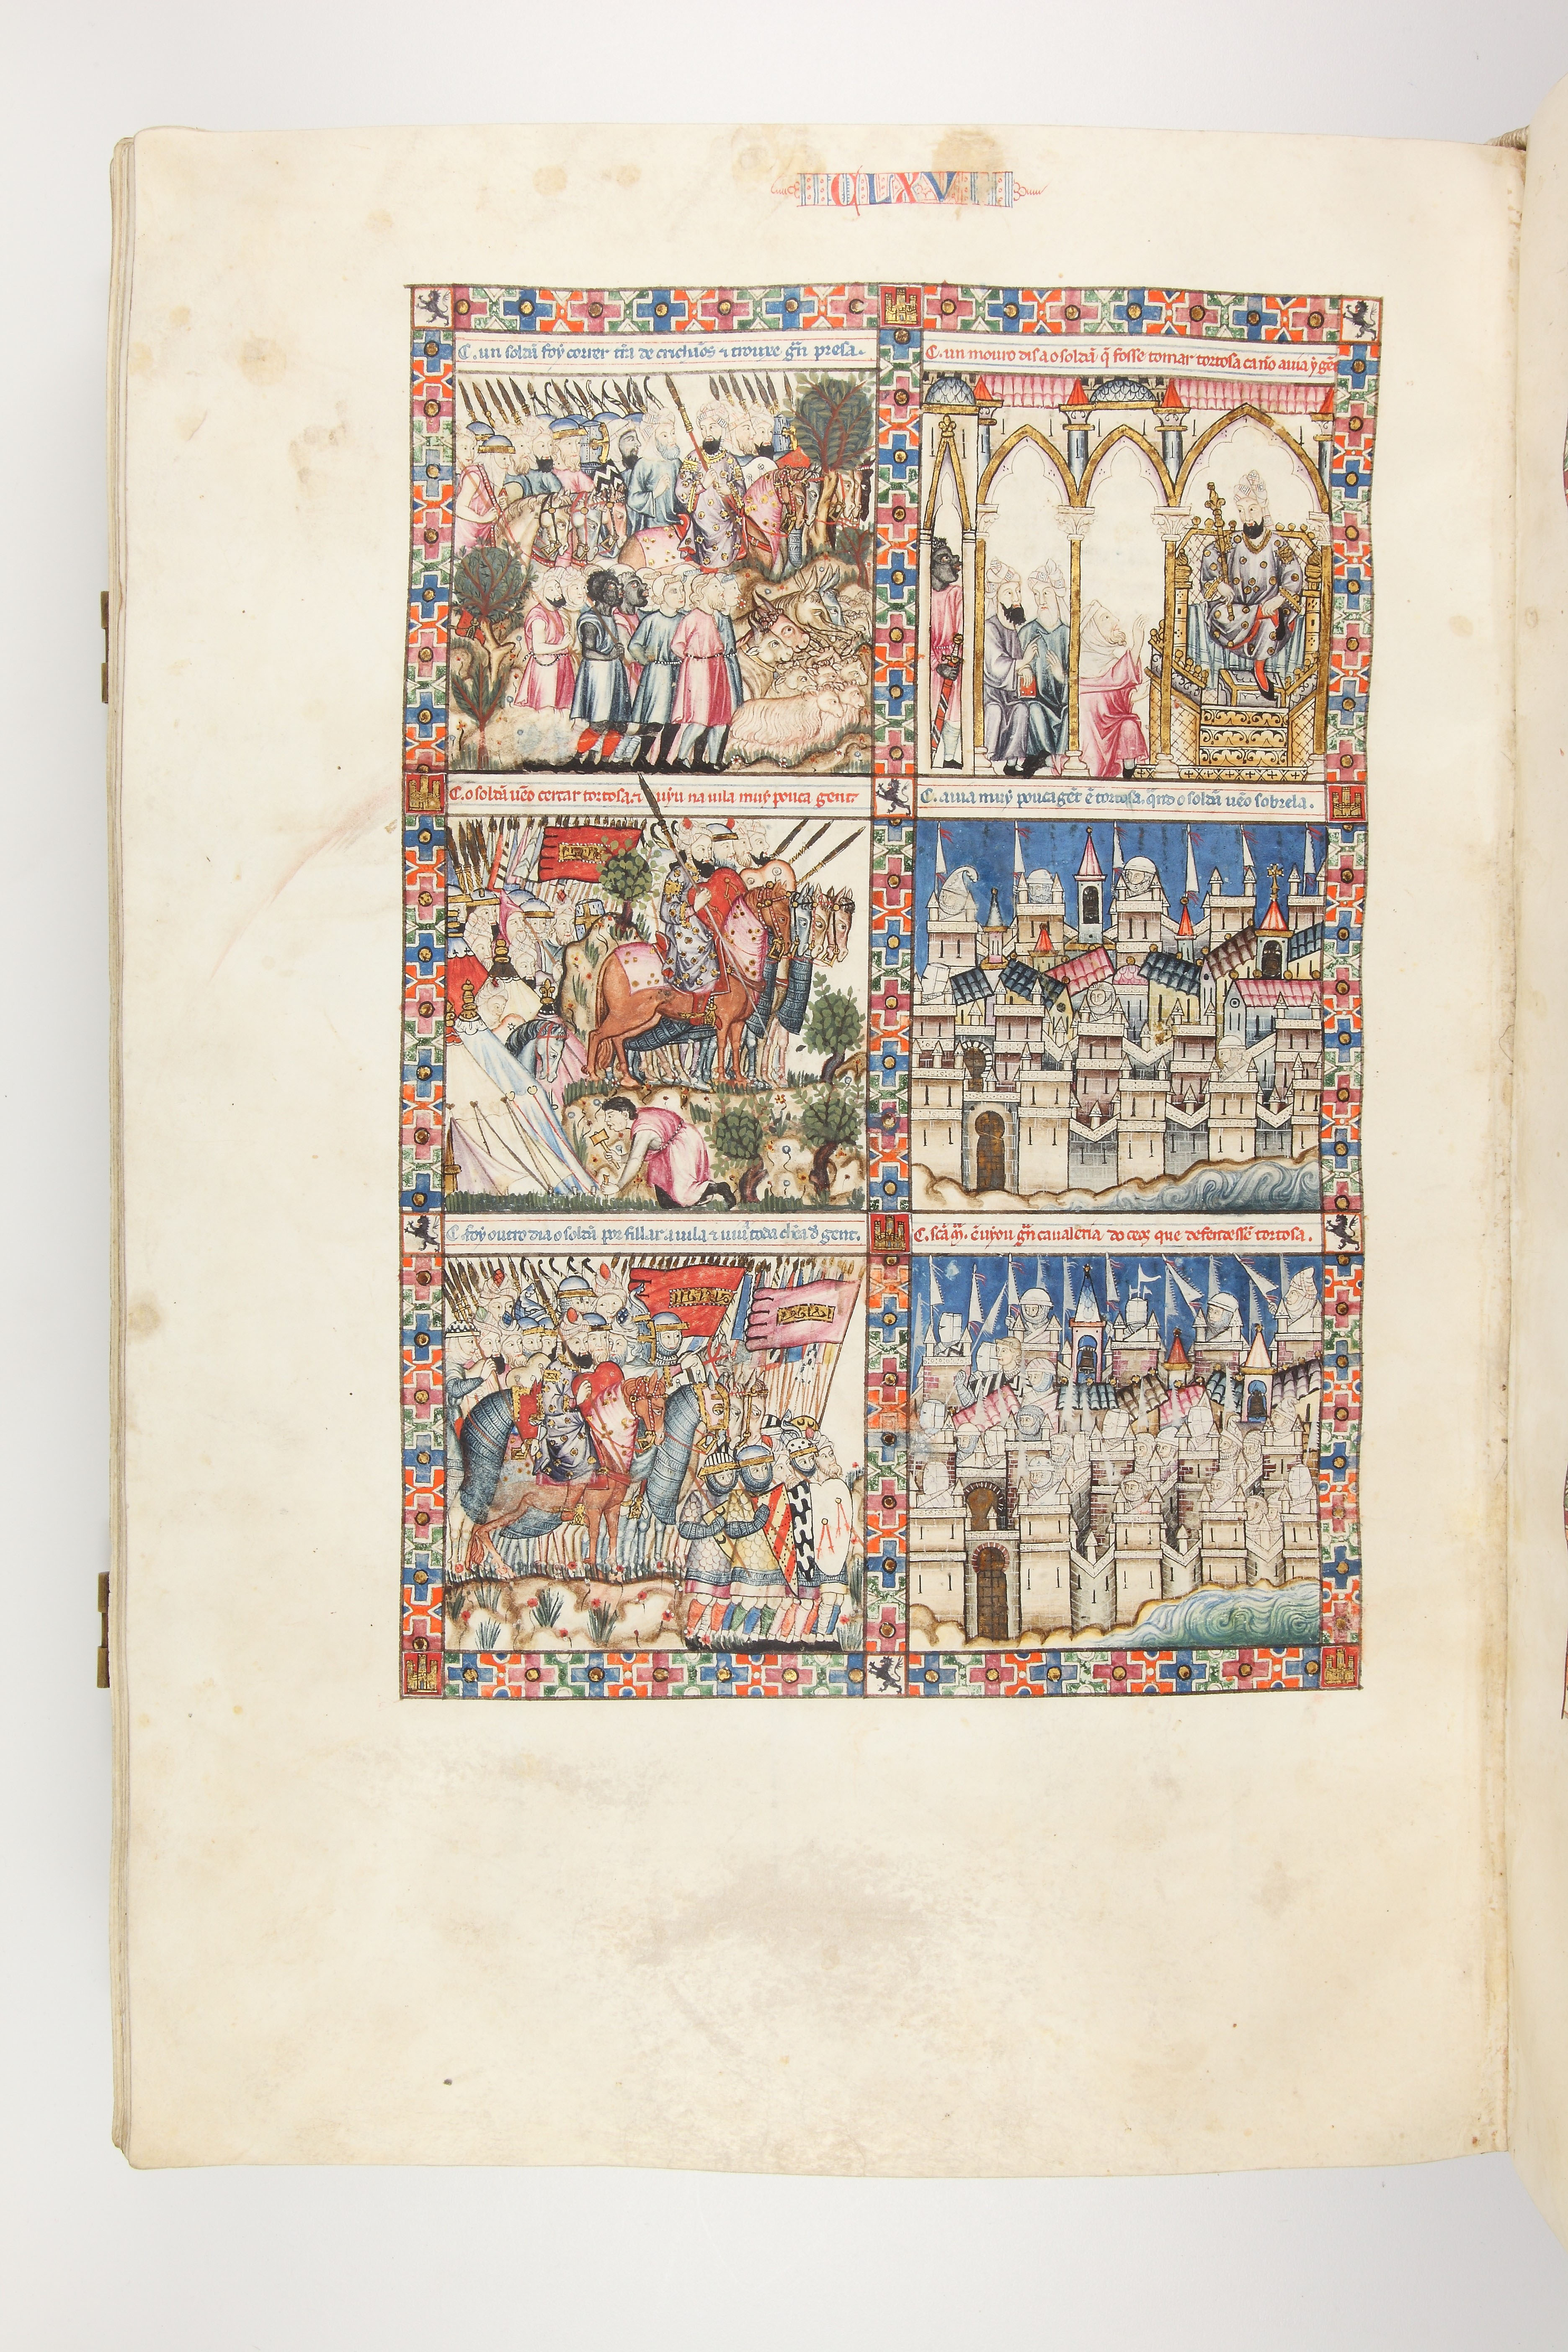 CLXV
C. un soldã foy correr tr̃ra de crichãos ⁊ trouxe gñ presa.
C. un mouro dis ao soldã q̃ fosse tomar tortosa ca nõ auia y gẽt
C. o soldã uẽo cercar tortosa ⁊ uyu na uila muy pouca gent.
C. auia muy pouca gẽt ẽ tortosa. qñdo o soldã uẽo sobrela.
C. foy outro dia o soldã por fillar a uila ⁊ uiua toda chẽa d̃ gent.
C. scã m̃. ẽuyou gñ caualeria do ceo que defendessẽ tortosa.